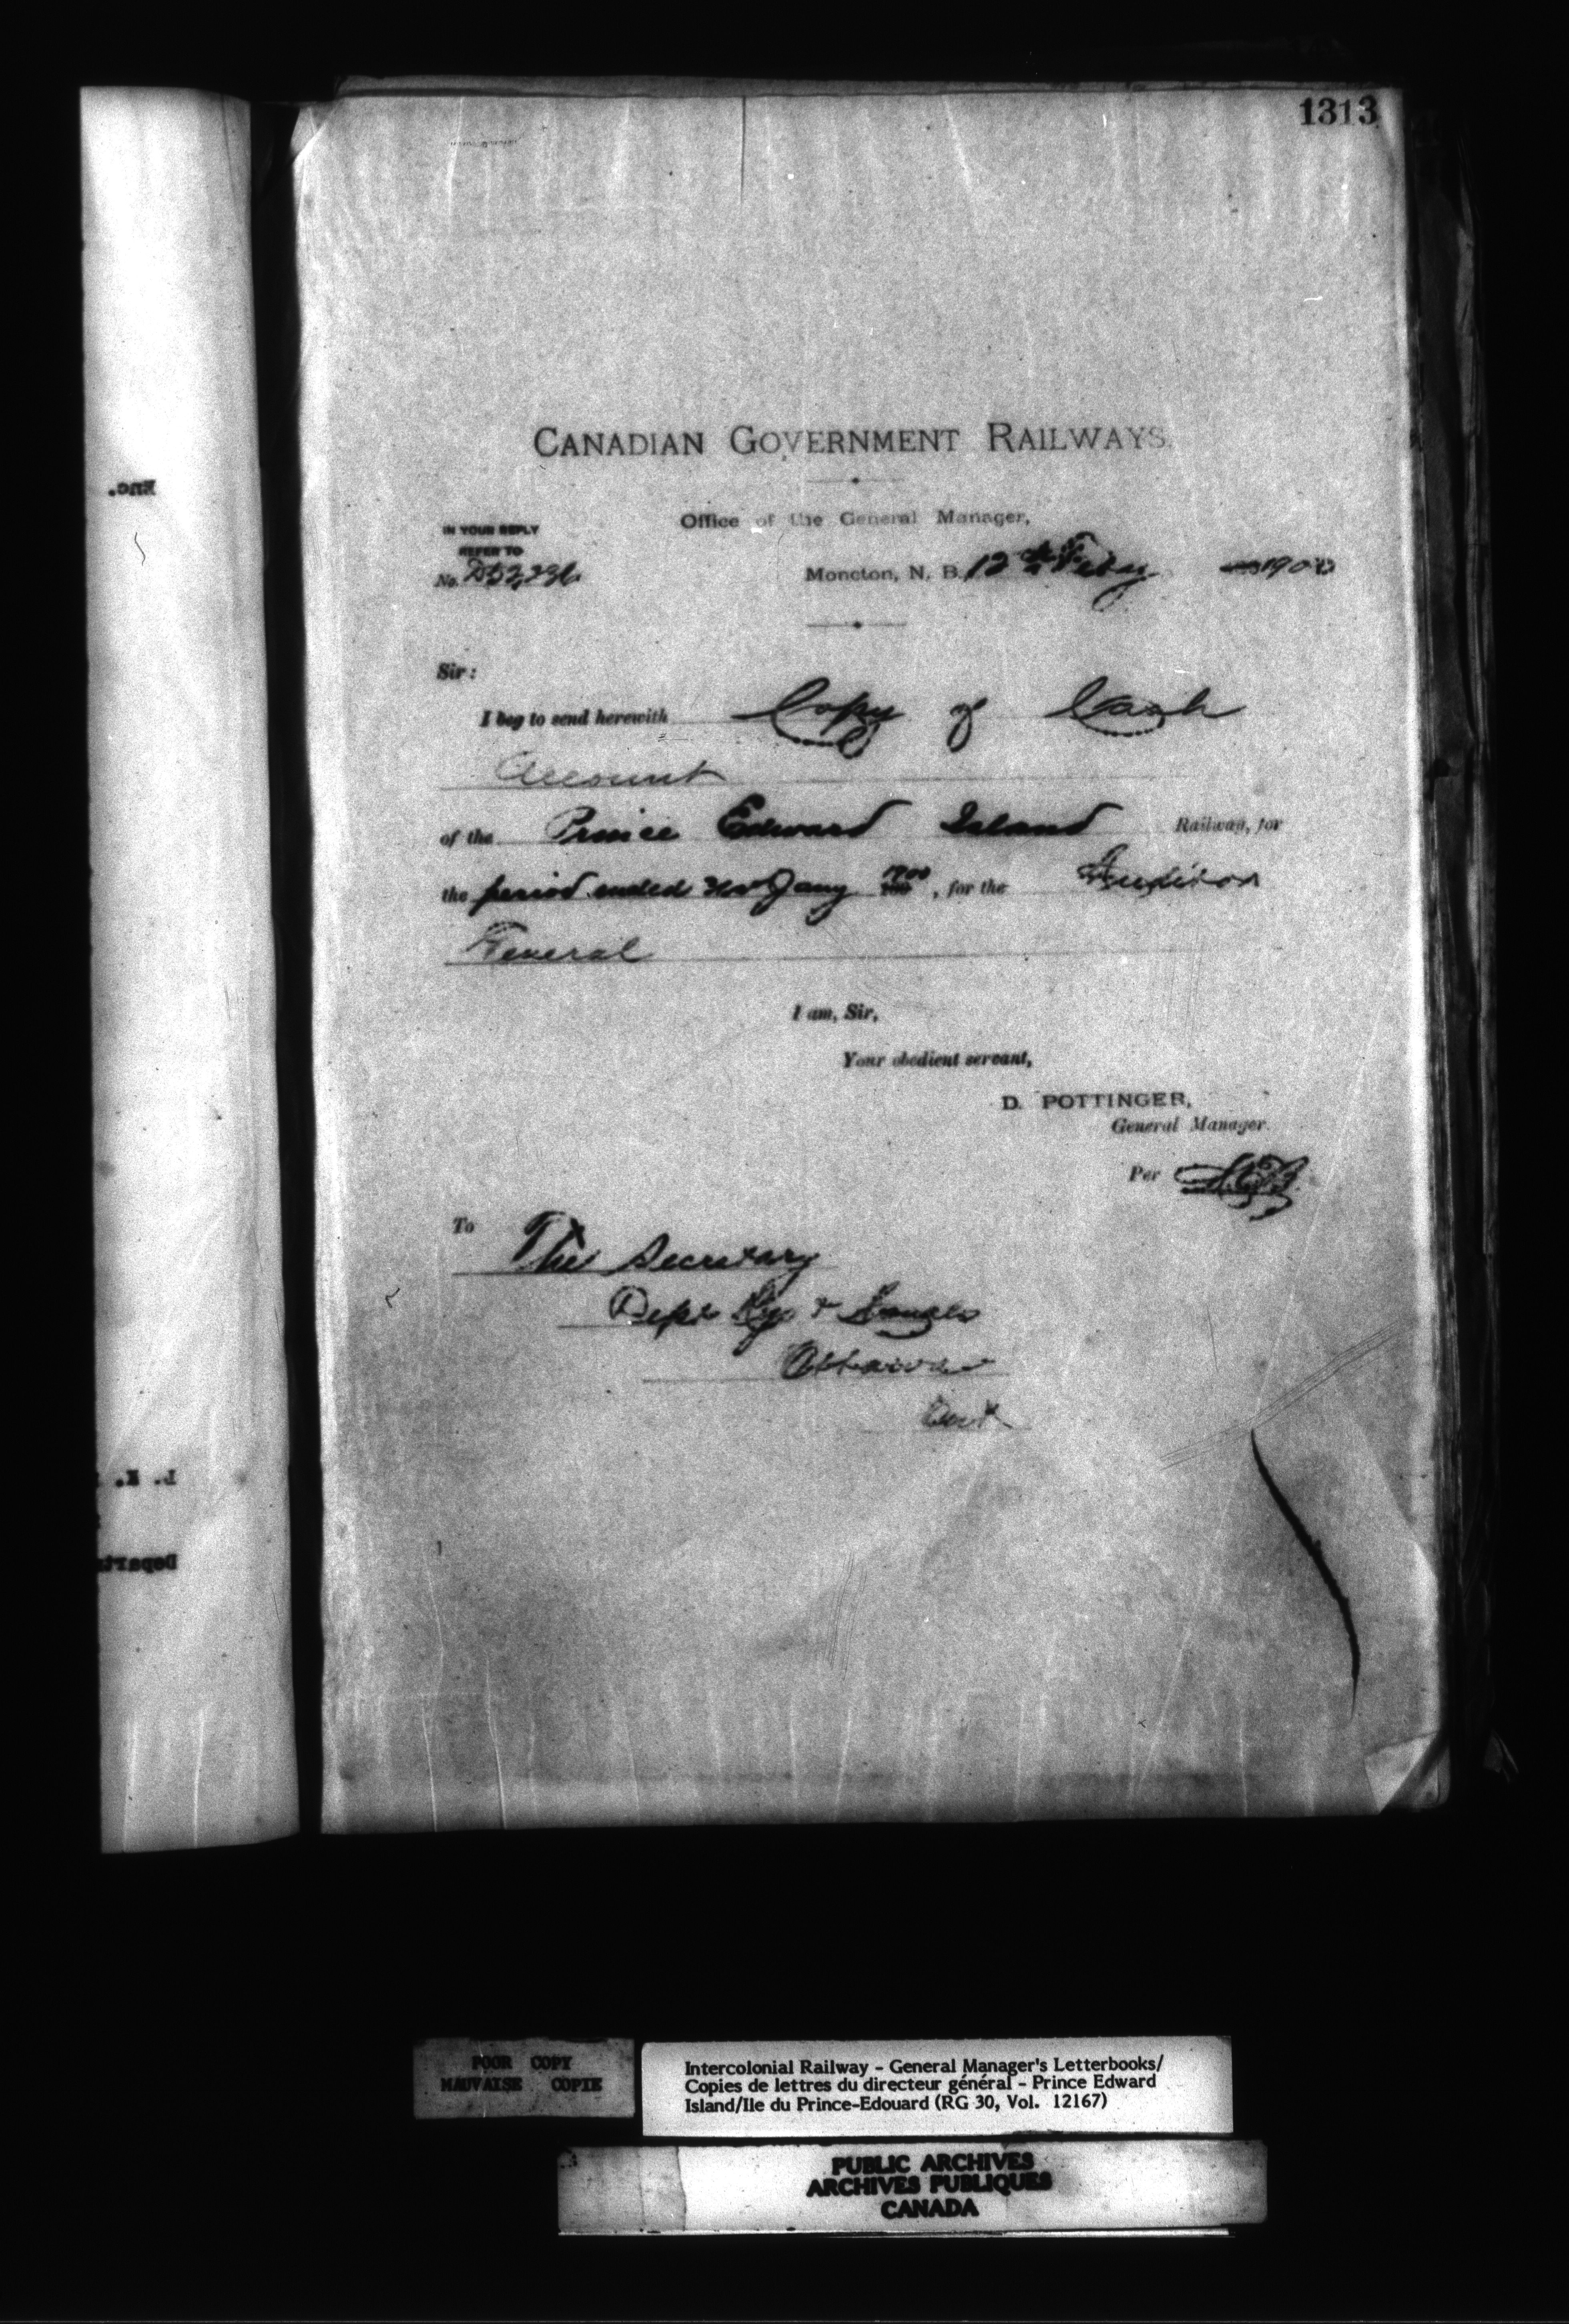 1313
CANADIAN GOVERNMENT RAILWAYS.
Office of the General Manager,
IN YOUR REPLY
REFER TO
No. D52,236
Moncton, N. B. 12th Feby 1900
Sir:
I beg to send herewith Copy of Cash
Account
of the Prince Edward Island Railway, for
the period ended 31st Jany 1900, for the Auditor
General
I am, Sir,
Your obedient servant,
D. POTTINGER,
General Manager.
Per
To The Secretary
Dept Rys & Canals
Ottawa
Ont
Enc.
L. K.
Departm
POOR COPY
MAUVAISE COPIE
Intercolonial Railway - General Manager's Letterbooks/
Copies de lettres du directeur général - Prince Edward
Island/Ile du Prince-Edouard (RG 30, Vol. 12167)
PUBLIC ARCHIVES
ARCHIVES PUBLIQUES
CANADA